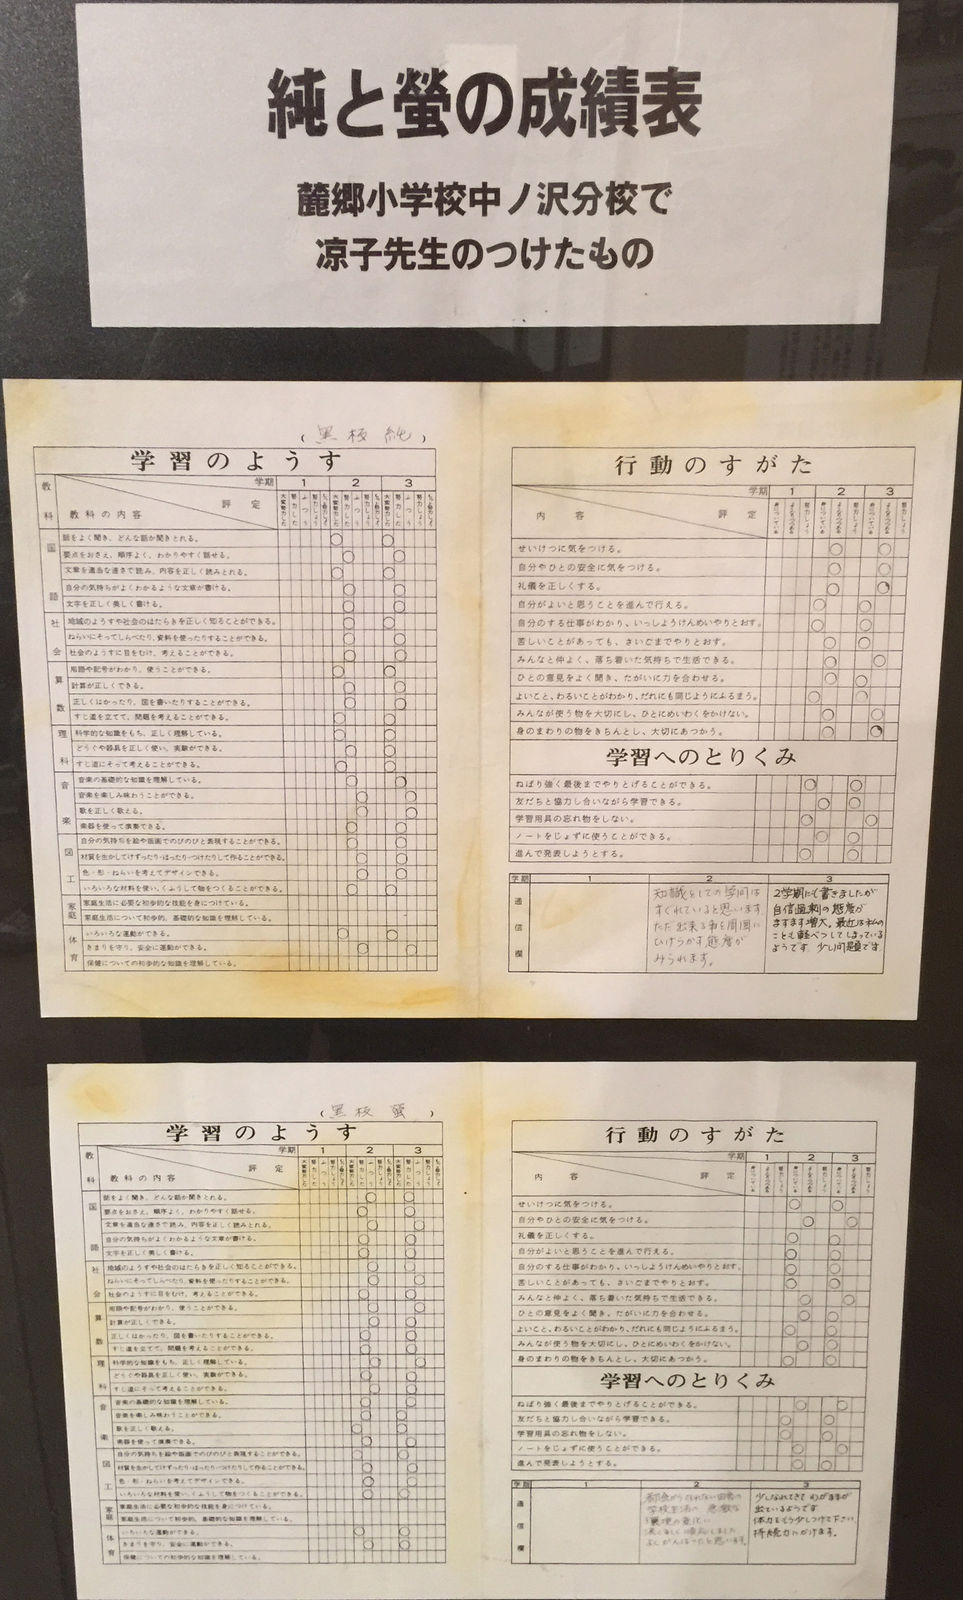 純と螢の成績表
麓郷小学校中ノ沢分校で
凉子先生のつけたもの
(黒板 純)
学習のようす
学期 1 2 3
教科
評定
教科の内容
国語
話をよく聞き、どんな話か聞きとれる。
要点をおさえ、順序よく、わかりやすく話せる。
文章を適当な速さで読み、内容を正しく読みとれる。
自分の気持ちがよくわかるような文章が書ける。
文字を正しく美しく書ける。
社会
地域のようすや社会のはたらきを正しく知ることができる。
ねらいにそってしらべたり、資料を使ったりすることができる。
社会のようすに目をむけ、考えることができる。
算数
用語や記号がわかり、使うことができる。
計算が正しくできる。
正しくはかったり、図を書いたりすることができる。
すじ道を立てて、問題を考えることができる。
理科
科学的な知識をもち、正しく理解している。
どうぐや器具を正しく使い、実験ができる。
すじ道にそって考えることができる。
音楽
音楽の基礎的な知識を理解している。
音楽を楽しみ味わうことができる。
歌を正しく歌える。
楽器を使って演奏できる。
図工
自分の気持ちを絵や版画でのびのびと表現することができる。
材質を生かしてけずったり・ほったり・つけたりして作ることができる。
色・形・ねらいを考えてデザインできる。
いろいろな材料を使い、くふうして物をつくることができる。
家庭
家庭生活に必要な初歩的な技能を身につけている。
家庭生活について初歩的、基礎的な知識を理解している。
体育
いろいろな運動ができる。
きまりを守り、安全に運動ができる。
保健についての初歩的な知識を理解している。
行動のすがた
学期 1 2 3
評定
内容
せいけつに気をつける。
自分やひとの安全に気をつける。
礼儀を正しくする。
自分がよいと思うことを進んで行える。
自分のする仕事がわかり、いっしょうけんめいやりとおす。
苦しいことがあっても、さいごまでやりとおす。
みんなと仲よく、落ち着いた気持ちで生活できる。
ひとの意見をよく聞き、たがいに力を合わせる。
よいこと、わるいことがわかり、だれにも同じようにふるまう。
みんなが使う物を大切にし、ひとにめいわくをかけない。
身のまわりの物をきちんとし、大切にあつかう。
学習へのとりくみ
ねばり強く最後までやりとげることができる。
友だちと協力し合いながら学習できる。
学習用具の忘れ物をしない。
ノートをじょずに使うことができる。
進んで発表しようとする。
学期 1 2 3
通信欄
知識としての学問は
すぐれていると思います。
ただ出来る事を周囲に
ひけらかす態度が
みられます。
2学期にも書きましたが
自信過剰の態度が
ますます増大。最近は私の
ことも軽べつしてしまっている
ようです。少し問題です。
(黒板 螢)
学習のようす
学期 1 2 3
教科
評定
教科の内容
国語
話をよく聞き、どんな話か聞きとれる。
要点をおさえ、順序よく、わかりやすく話せる。
文章を適当な速さで読み、内容を正しく読みとれる。
自分の気持ちがよくわかるような文章が書ける。
文字を正しく美しく書ける。
社会
地域のようすや社会のはたらきを正しく知ることができる。
ねらいにそってしらべたり、資料を使ったりすることができる。
社会のようすに目をむけ、考えることができる。
算数
用語や記号がわかり、使うことができる。
計算が正しくできる。
正しくはかったり、図を書いたりすることができる。
すじ道を立てて、問題を考えることができる。
理科
科学的な知識をもち、正しく理解している。
どうぐや器具を正しく使い、実験ができる。
すじ道にそって考えることができる。
音楽
音楽の基礎的な知識を理解している。
音楽を楽しみ味わうことができる。
歌を正しく歌える。
楽器を使って演奏できる。
図工
自分の気持ちを絵や版画でのびのびと表現することができる。
材質を生かしてけずったり・ほったり・つけたりして作ることができる。
色・形・ねらいを考えてデザインできる。
いろいろな材料を使い、くふうして物をつくることができる。
家庭
家庭生活に必要な初歩的な技能を身につけている。
家庭生活について初歩的、基礎的な知識を理解している。
体育
いろいろな運動ができる。
きまりを守り、安全に運動ができる。
保健についての初歩的な知識を理解している。
行動のすがた
学期 1 2 3
評定
内容
せいけつに気をつける。
自分やひとの安全に気をつける。
礼儀を正しくする。
自分がよいと思うことを進んで行える。
自分のする仕事がわかり、いっしょうけんめいやりとおす。
苦しいことがあっても、さいごまでやりとおす。
みんなと仲よく、落ち着いた気持ちで生活できる。
ひとの意見をよく聞き、たがいに力を合わせる。
よいこと、わるいことがわかり、だれにも同じようにふるまう。
みんなが使う物を大切にし、ひとにめいわくをかけない。
身のまわりの物をきちんとし、大切にあつかう。
学習へのとりくみ
ねばり強く最後までやりとげることができる。
友だちと協力し合いながら学習できる。
学習用具の忘れ物をしない。
ノートをじょずに使うことができる。
進んで発表しようとする。
学期 1 2 3
通信欄
学校生活の
よくがんばったと思います。
少しなれてきてわがままが
出ているようです。
体力をもう少しつけて下さい。
持続力にかけます。